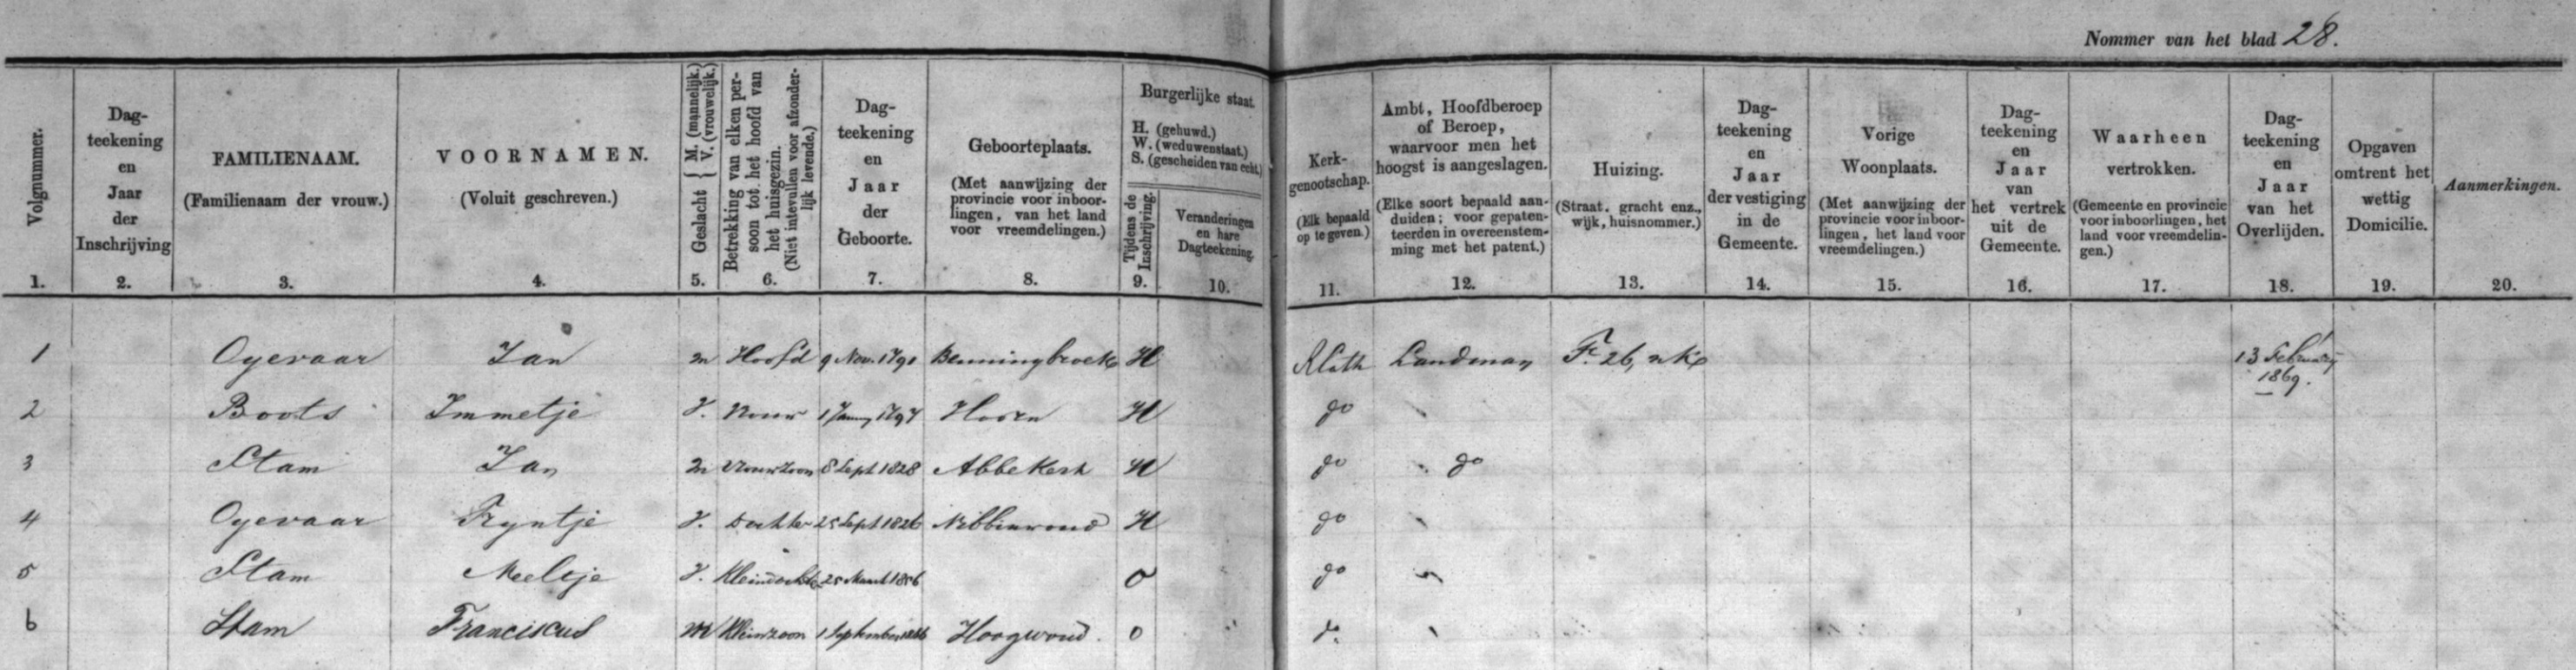 Nommer van het blad 28.
Volgnummer.
1.
Dag-
teekening
en
Jaar
der
Inschrijving
2.
FAMILIENAAM.
(Familienaam der vrouw.)
3.
VOORNAMEN.
(Voluit geschreven.)
4.
Geslacht { M. (mannelijk.)
V. (vrouwelijk.)
5.
Betrekking van elken per-
soon tot het hoofd van
het huisgezin.
(Niet intevullen voor afzonder-
lijk levende.)
6.
Dag-
teekening
en
Jaar
der
Geboorte.
7.
Geboorteplaats.
(Met aanwijzing der
provincie voor inboor-
lingen, van het land
voor vreemdelingen.)
8.
Burgerlijke staat.
H. (gehuwd.)
W. (weduwenstaat.)
S. (gescheiden van echt.)
Tijdens de
Inschrijving.
9.
Veranderingen
en hare
Dagteekening.
10.
Kerk-
genootschap.
(Elk bepaald
op te geven.)
11.
Ambt, Hoofdberoep
of Beroep,
waarvoor men het
hoogst is aangeslagen.
(Elke soort bepaald aan-
duiden; voor gepaten-
teerden in overeenstem-
ming met het patent.)
12.
Huizing.
(Straat, gracht enz.,
wijk, huisnommer.)
13.
Dag-
teekening
en
Jaar
der vestiging
in de
Gemeente.
14.
Vorige
Woonplaats.
(Met aanwijzing der
provincie voor inboor-
lingen, het land voor
vreemdelingen.)
15.
Dag-
teekening
en
Jaar
van
het vertrek
uit de
Gemeente.
16.
Waarheen
vertrokken.
(Gemeente en provincie
voor inboorlingen, het
land voor vreemdelin-
gen.)
17.
Dag-
teekening
en
Jaar
van het
Overlijden.
18.
Opgaven
omtrent het
wettig
Domicilie.
19.
Aanmerkingen.
20.
1 Oyevaar Jan m Hoofd 9 Nov. 1791 Benningbroek H RCath Landman 26, 13 February
1869.
2 Boots Immetje V. Vrouw 1 1797 Hoorn H do
3 Stam Jan m 8 Sept 1828 Abbekerk H do do
4 Oyevaar Tryntje V. Dochter 25 Sept 1826 Nibbixwoud H do
5 Stam Meeltje V. Kleindochter 25 Maart 1856 O do
6 Stam Franciscus M Kleinzoon 1 September Hoogwoud. O do